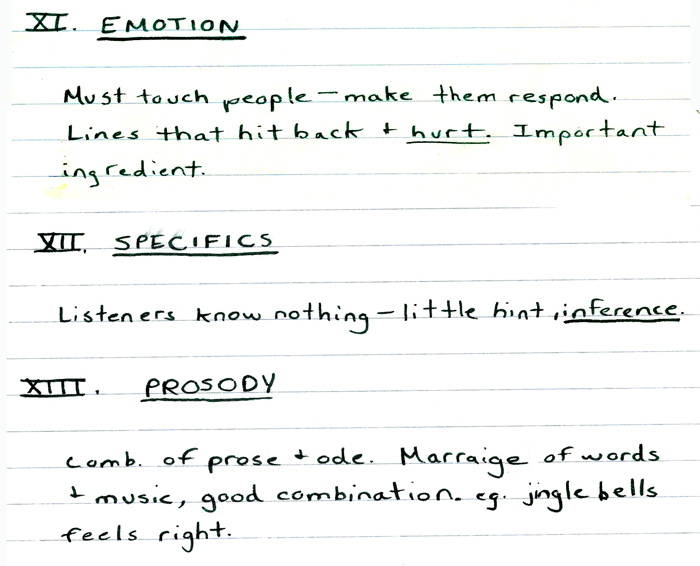 XI. EMOTION
Must touch people – make them respond.
Lines that hit back + hurt. Important
ingredient.
XII. SPECIFICS
Listeners know nothing – little hint, inference.
XIII. PROSODY
comb. of prose + ode. Marraige of words
+ music, good combination. eg. jingle bells
feels right.